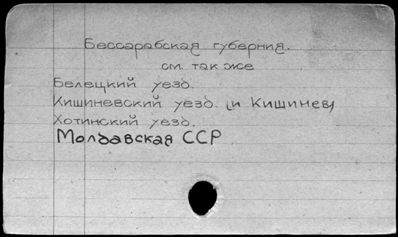 Бессарабская губерния.
см. так же
Белецкий уезд.
Кишиневский уезд. (и Кишинев)
Хотинский уезд.
Молдавская ССР